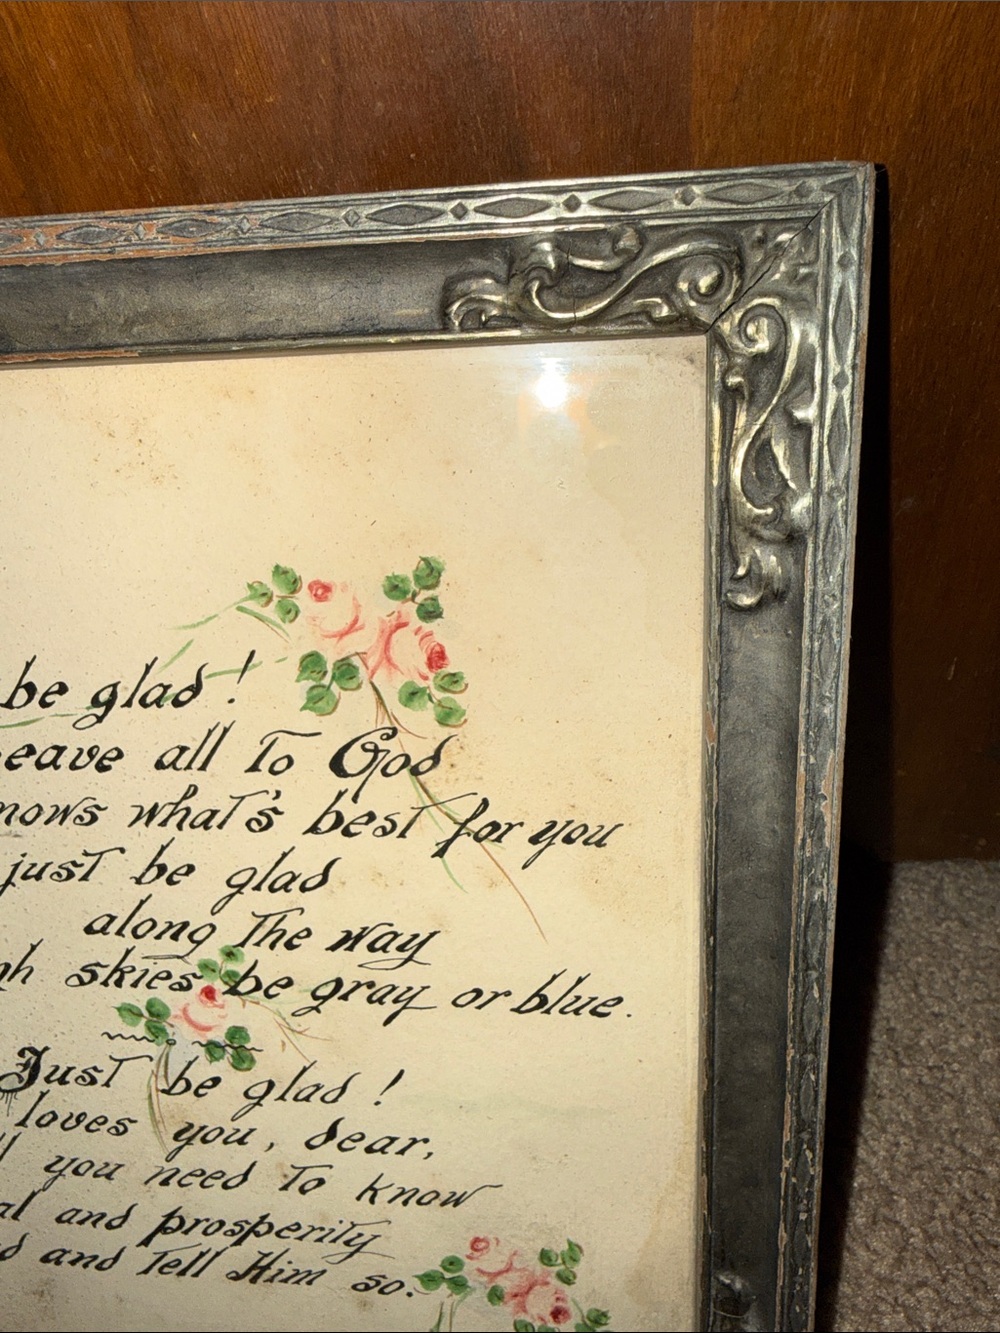 be glad!
eave all to God
nows what's best for you
just be glad
along the way
gh skies be gray or blue.
Just be glad!
loves you, dear,
you need to know
al and prosperity
d and tell Him so.